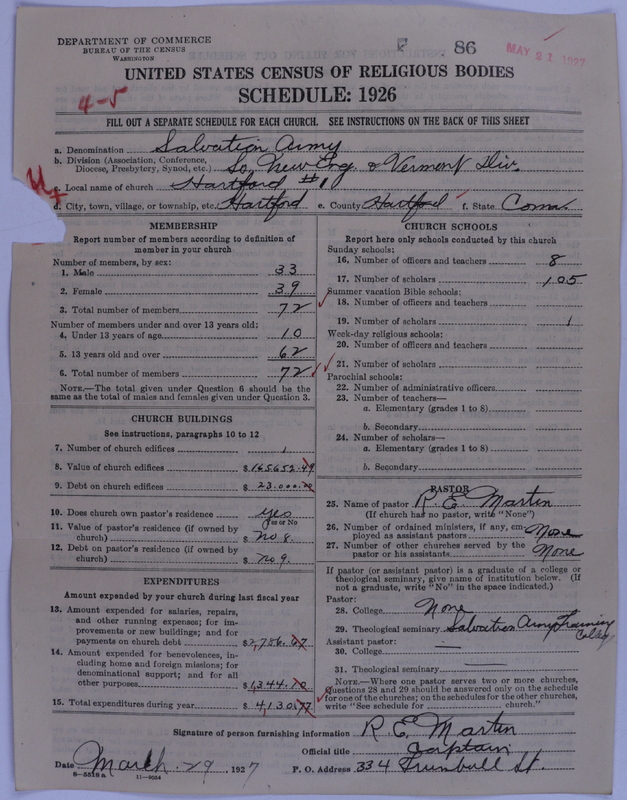 DEPARTMENT OF COMMERCE
BUREAU OF THE CENSUS
WASHINGTON
86
MAY 21 1927
UNITED STATES CENSUS OF RELIGIOUS BODIES
SCHEDULE: 1926
4-5
FILL OUT A SEPARATE SCHEDULE FOR EACH CHURCH. SEE INSTRUCTIONS ON THE BACK OF THIS SHEET
a. Denomination Salvation Army
b. Division (Association, Conference, Diocese, Presbytery, Synod, etc.) So. New Eng & Vermont Div.
c. Local name of church Hartford #1
d. City, town, village, or township, etc. Hartford e. County Hartford f. State Conn.
MEMBERSHIP
Report number of members according to definition of
member in your church
Number of members, by sex:
1. Male 33
2. Female 39
3. Total number of members 72
Number of members under and over 13 years old:
4. Under 13 years of age 10
5. 13 years old and over 62
6. Total number of members 72
NOTE.—The total given under Question 6 should be
same as the total of males and females given under Question 3.
CHURCH BUILDINGS
See instructions, paragraphs 10 to 12
7. Number of church edifices 1
8. Value of church edifices $165652.49
9. Debt on church edifices $23.000.00
10. Does church own pastor's residence Yes
Yes or No
11. Value of pastor's residence (if owned by
church) $ no 8.
12. Debt on pastor's residence (if owned by
church) $ no 9.
EXPENDITURES
Amount expended by your church during last fiscal year
13. Amount expended for salaries, repairs,
and other running expenses; for im-
provements or new buildings; and for
payments on church debt $2,786.07
14. Amount expended for benevolences, in-
cluding home and foreign missions; for
denominational support; and for all
other purposes $1,344.70
15. Total expenditures during year $4,130.77
CHURCH SCHOOLS
Report here only schools conducted by this church
Sunday schools:
16. Number of officers and teachers 8
17. Number of scholars 105
Summer vacation Bible schools:
18. Number of officers and teachers
19. Number of scholars 1
Week-day religious schools:
20. Number of officers and teachers
21. Number of scholars
Parochial schools:
22. Number of administrative officers
23. Number of teachers—
a. Elementary (grades 1 to 8)
b. Secondary
24. Number of scholars—
a. Elementary (grades 1 to 8)
b. Secondary
PASTOR
25. Name of pastor R. E. Martin
(If church has no pastor, write "None")
26. Number of ordained ministers, if any, em-
ployed as assistant pastors None
27. Number of other churches served by the
pastor or his assistants None
If pastor (or assistant pastor) is a graduate of a college or
theological seminary, give name of institution below. (If
not a graduate, write "No" in the space indicated.)
Pastor:
28. College None
29. Theological seminary Salvation Army Training College
Assistant pastor:
30. College
31. Theological seminary
NOTE.—Where one pastor serves two or more churches,
Questions 28 and 29 should be answered only on the schedule
for one of the churches; on the schedules for the other churches,
write "See schedule for church."
Signature of person furnishing information R. E. Martin
Official title Captain
Date March 29, 1927 P. O. Address 334 Trumbull St.
8—5518a 11—9054